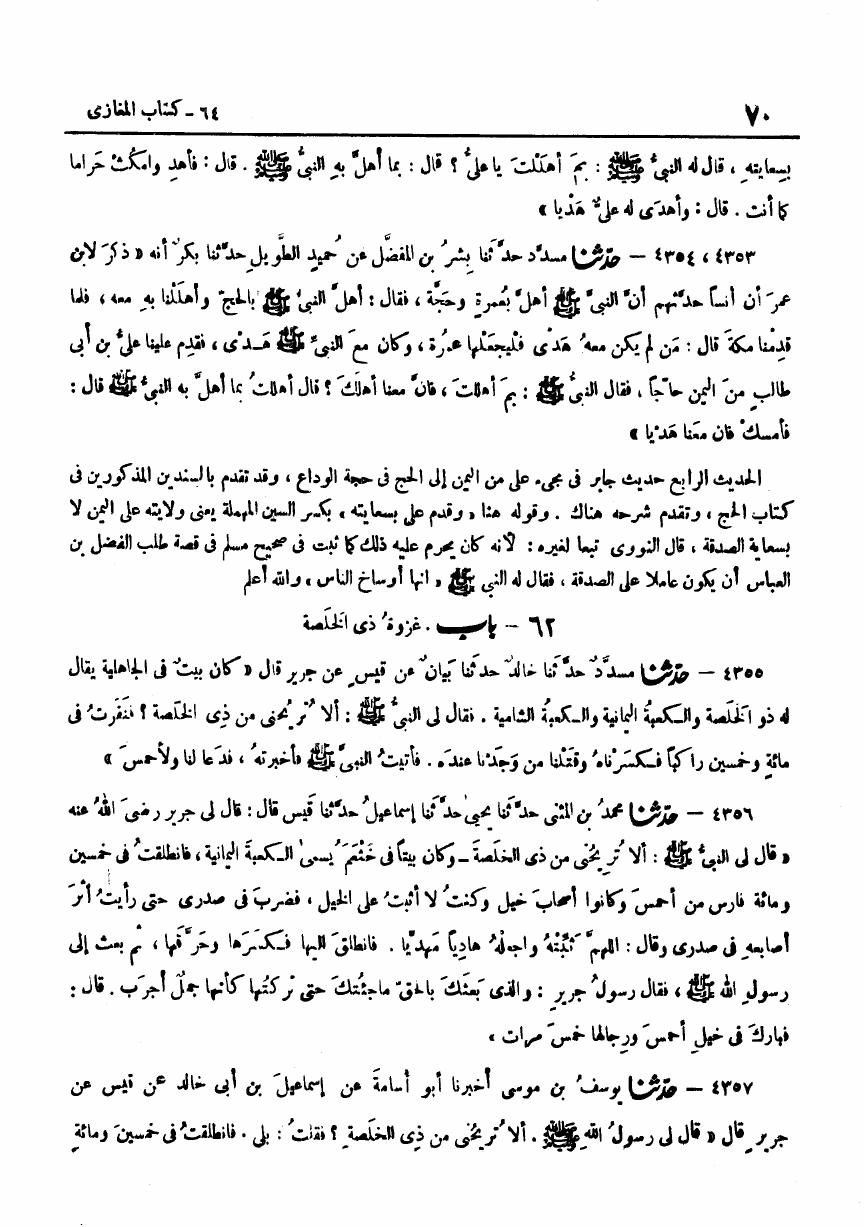 ٧٠ ٦٤ - كتاب المغازى
بسِعايتهِ ، قال له النبىُّ ﷺ : بمَ أهلَلْتَ يا علىُّ ؟ قال : بما أهلَّ بهِ النبىُّ ﷺ . قال : فأهدِ وامكُثْ حَراما
كما أنت . قال : وأهدَى له علىٌّ هَدْيا »
٤٣٥٣ ، ٤٣٥٤ – حدّثنا مسدَّد حدَّثنا بِشرُ بن المفضَّل عن ُحميدٍ الطَّويلِ حدَّثنا بكرٌ أنه « ذكرَ لابن
عمرَ أن أنساً حدَّثهم أنَّ النبىَّ ﷺ أهلَّ بعُمرةٍ وحجَّة ، فقال : أهلَّ النبىُّ ﷺ بالحجّ وأهلَلْنا بهِ معه ، فلما
قدِمْنا مكةَ قال : مَن لم يكن معهُ هَدْى فلْيجعَلْها عمُرة ، وكان معَ النبىِّ ﷺ هَـدْى ، فقدِم علينا علىُّ بن أبى
طالبٍ منَ اليمن حاجّاً ، فقال النبىُّ ﷺ : بمَ أهلتَ ، فانَّ معنا أهلَكَ ؟ قال أهللتُ بما أهلَّ به النبىُّ ﷺ قال :
فأمسكْ فان معَنا هَدْيا »
الحديث الرابع حديث جابر فى مجىء على من اليمن إلى الحج فى حجة الوداع ، وقد تقدم بالسندين المذكورين فى
كتاب الحج ، وتقدم شرحه هناك . وقوله هنا « وقدم على بسعايته » بكسر السين المهملة يعنى ولايته على اليمن لا
بسعاية الصدقة ، قال النووى تبعا لغيره : لأنه كان يحرم عليه ذلك كما ثبت فى صحيح مسلم فى قصة طلب الفضل بن
العباس أن يكون عاملا على الصدقة ، فقال له النبى ﷺ « انها أوساخ الناس » والله أعلم
٦٢ – باب . غزوةُ ذى الخَلَصة
٤٣٥٥ – حدّثنا مسدَّدٌ حدَّثنا خالدٌ حدثنا بَيانٌ عن قيسٍ عن جرير قال « كان بيتٌ فى الجاهلية يقال
له ذو الخَلَصة والـكعبةُ اليمانية والـكعبةُ الشامية . فقال لى النبىُّ ﷺ : ألا تُريحُنى من ذِى الخلَصة ؟ فنَفَرتُ فى
مائةٍ وخمسين راكباً فـكسَرْناهُ وقتَلْنا من وَجَدْنا عندَه . فأتيتُ النبىَّ ﷺ فأخبرتهُ ، فدَعا لنا ولأحمسَ »
٤٣٥٦ – حدّثنا محمدُ بن المثنى حدَّثنا يحيىٰ حدَّثنا إسماعيلُ حدَّثنا قَيس قال : قال لى جرير رضىَ اللهُ عنه
« قال لى النبىُّ ﷺ : ألا تُريحُنى من ذى الخلصةَ ـ وكان بيتاً فى خَثْعَمَ يُسمىٰ الـكعبةَ اليمانية ، فانطلقتُ فى خمسين
ومائة فارس من أحمسَ وكانوا أصحابَ خيل وكنتُ لا أثبتُ على الخيل ، فضربَ فى صدرى حتى رأيتُ أثرَ
أصابعهِ فى صدرى وقال : اللهمَّ ثَبِّتْهُ واجعلْهُ هادِياً مَهديّا . فانطلقَ اليها فـكسَرَها وحَرَّقها ، ثم بعث إلى
رسولِ الله ﷺ ، فقال رسولُ جريرٍ : والذى بَعثَكَ بالحقّ ماجئتُكَ حتى تركتُها كأنها جملٌ أجرَب . قال :
فبارَكَ فى خيلِ أحمسَ ورِجالها خمسَ مرات »
٤٣٥٧ – حدّثنا يوسفُ بن موسى أخبرنا أبو أسامةَ عن إسماعيلَ بن أبى خالد عن قيس عن
جريرٍ قال « قال لى رسولُ اللهِ ﷺ . ألا تُريحُنى من ذِى الخلصةِ ؟ فقلتُ : بلى . فانطلقتُ فى خمسينَ ومائةِ